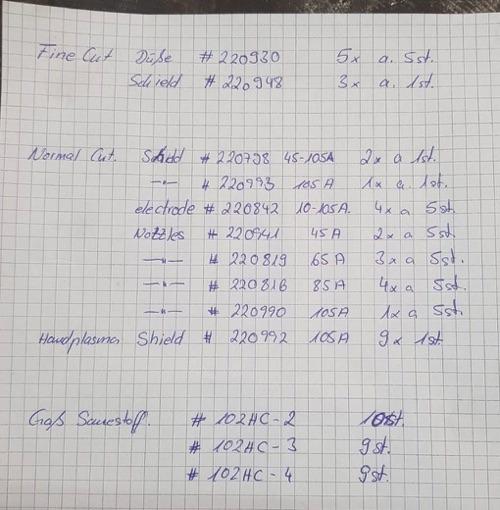 Fine Cut Düße # 220930 5x a. 5st.
Schield # 220948 3x a. 1st.
Normal Cut. Shild # 220798 45-105A 2x a 1st.
—"— # 220993 105A 1x a. 1st.
electrode # 220842 10-105A. 4x a 5st.
Nozzles # 220941 45A 2x a 5st.
—"— # 220819 65A 3x a 5st.
—"— # 220816 85A 4x a 5st.
—"— # 220990 105A 1x a 5st.
Handplasma Shield # 220992 105A 9x 1st.
Groß Sauestoff. # 102HC-2 10st.
# 102HC-3 9st.
# 102HC-4 9st.